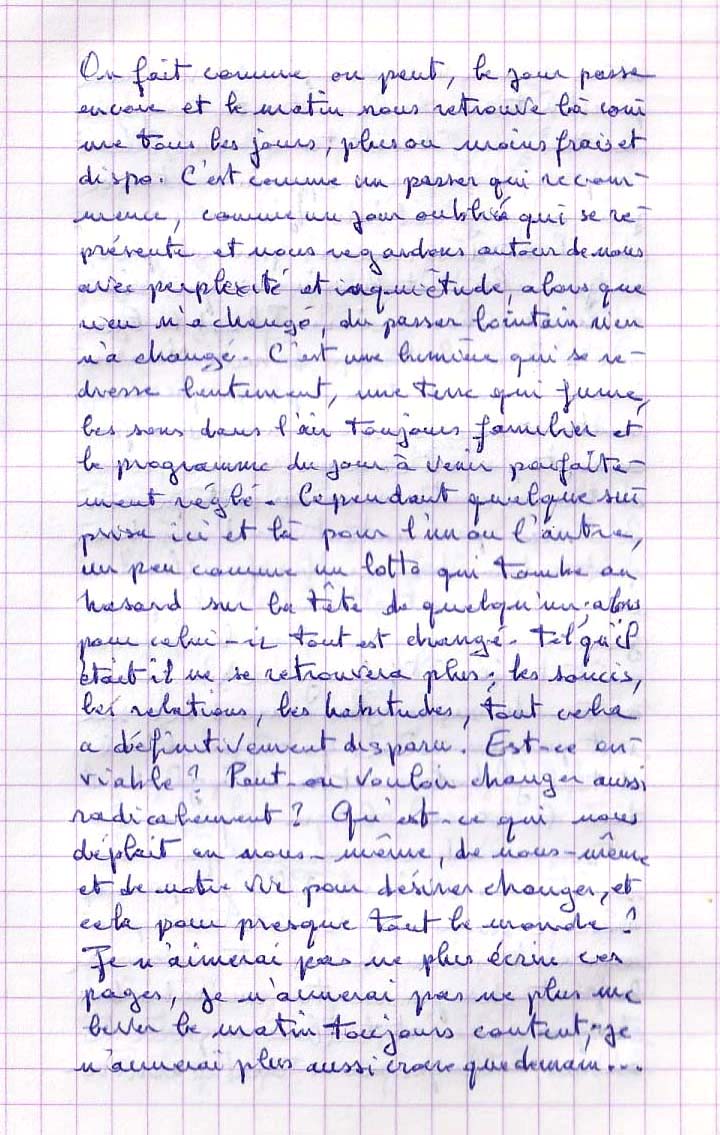 On fait comme on peut, le jour passe
encore et le matin nous retrouve là com
me tous les jours, plus ou moins frais et
dispo. C'est comme un passer qui recom-
mence, comme un jour oublié qui se re-
présente et nous regardons autour de nous
avec perplexité et inquiètude, alors que
rien n'a changé, du passer lointain rien
n'a changé. C'est une lumière qui se re-
dresse lentement, une terre qui fume,
les sons dans l'air toujours familier et
le programme du jour à venir parfaite-
ment réglé. Cependant quelque sur
prise ici et là pour l'un ou l'autre,
un peu comme un lotto qui tombe au
hasard sur la tête de quelqu'un: alors
pour celui-ci tout est changé. Tel qu'il
était il ne se retrouvera plus; les soucis,
les relations, les habitudes, tout cela
a définitivement disparu. Est-ce en-
viable? Peut-on vouloir changer aussi
radicalement? Qu'est-ce qui nous
déplait en nous-même, de nous-même
et de notre vie pour désirer changer, et
cela pour presque tout le monde?
Je n'aimerai pas ne plus écrire ces
pages, je n'aimerai pas ne plus me
lever le matin toujours content, je
n'aimerai plus aussi croire que demain...